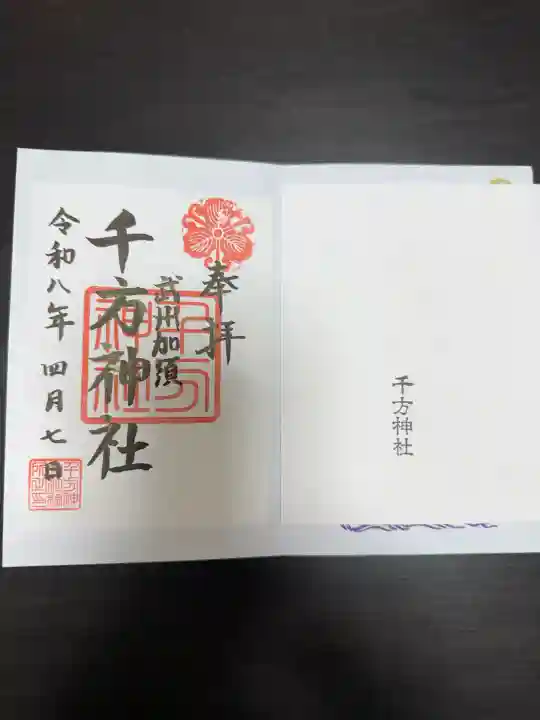 奉拝
武州加須
千方神社
令和八年四月七日
千方神社